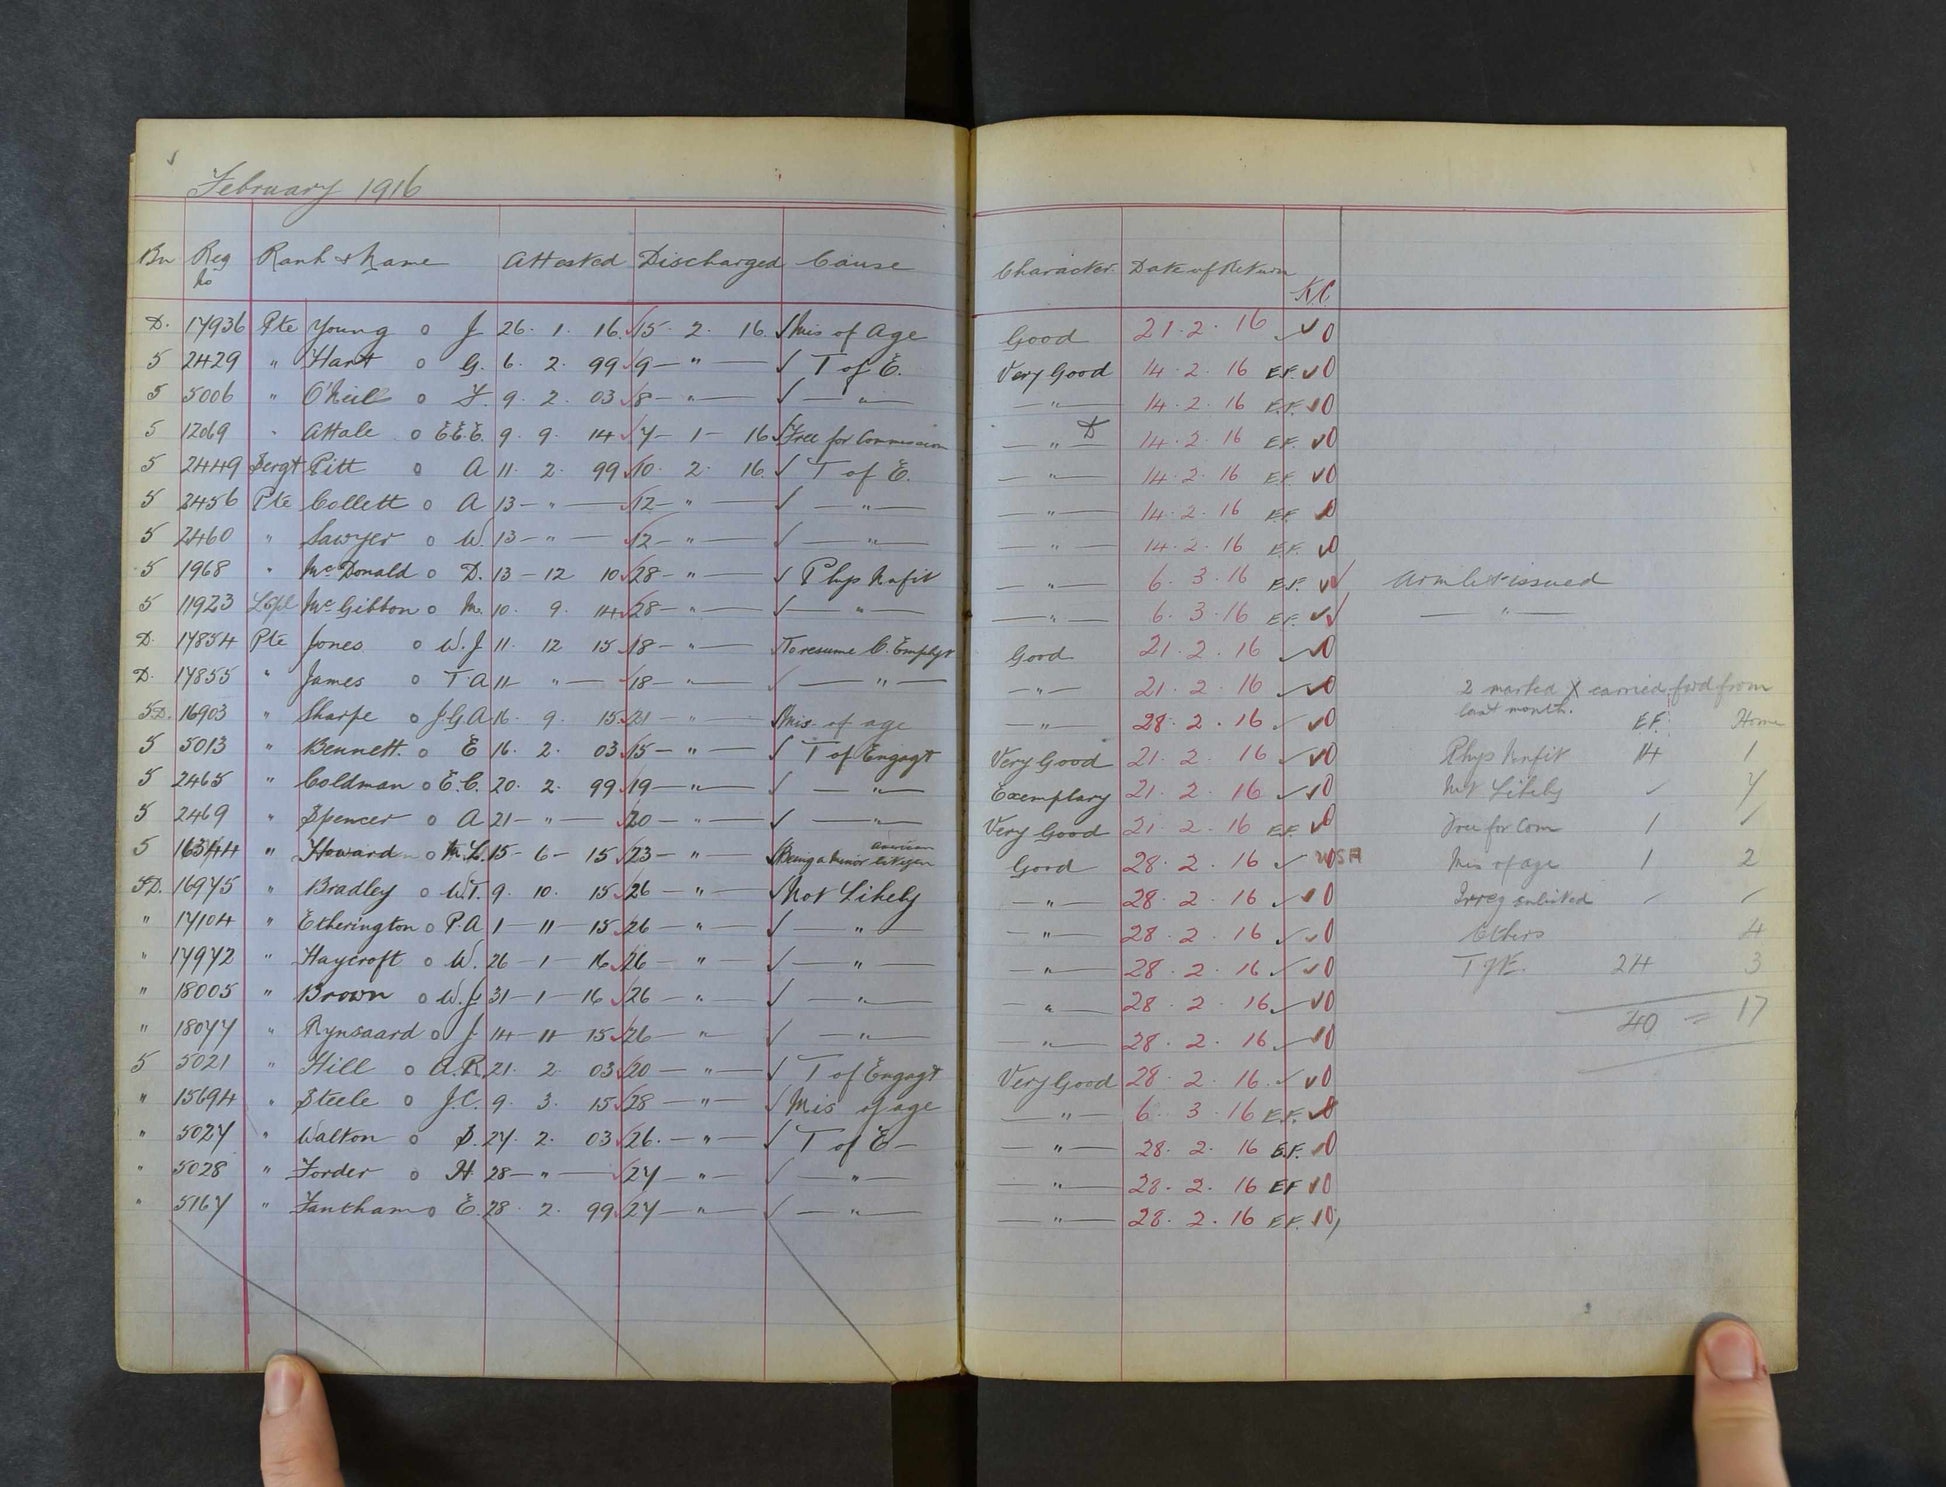 February 1916
Bn Reg No Rank & Name Attested Discharged Cause Character Date of Return K.C.
D. 17936 Pte Young o J 26. 1. 16 15. 2. 16 Mis of Age Good 21.2.16 0
5 2429 " Hart o G. 6. 2. 99 9 — " — T of E. Very Good 14.2.16 E.F. 0
5 5006 " O'Neill o F. 9. 2. 03 8 — " — — " — — " — 14.2.16 E.F. 0
5 12069 " Attale o E.E.E. 9. 9. 14 7 — 1 — 16 Free for Commission — " — D 14.2.16 E.F. 0
5 2449 Sergt Pitt o A 11. 2. 99 10. 2. 16 T of E. — " — 14.2.16 E.F. 0
5 2456 Pte Collett o A 13 — " — 12 — " — — " — — " — 14.2.16 E.F. 0
5 2460 " Sawyer o W. 13 — " — 12 — " — — " — — " — 14.2.16 E.F. 0
5 1968 " McDonald o D. 13 — 12 10 28 — " — Phys Unfit — " — 6.3.16 E.F. Armlet issued
5 11923 L/Cpl McGibbon o M. 10. 9. 14 28 — " — — " — — " — 6.3.16 E.F. — " —
D. 17854 Pte Jones o W.J 11. 12 15 18 — " — To resume C. Employt Good 21.2.16 0
D. 17855 " James o T.A 11 " — 18 — " — — " — — " — 21.2.16 0 2 marked X carried fwd from
last month. E.F. Home
5D. 16903 " Sharpe o J.G.A 16. 9. 15 21 — " — Mis. of age — " — 28.2.16 0
5 5013 " Bennett. o E 16. 2. 03 15 — " — T of Engagt Very Good 21.2.16 0 Phys Unfit 14 1
5 2465 " Coldman o E.C. 20. 2. 99 19 — " — — " — Exemplary 21.2.16 0 Not Likely 7
5 2469 " Spencer o A 21 — " — 20 — " — — " — Very Good 21.2.16 E.F. 0 Free for Com 1
5 16344 " Howard o M.L. 15 — 6 — 15 23 — " — Being a Minor American Citizen Good 28.2.16 USA Mis of age 1 2
5D. 16975 " Bradley o W.T. 9. 10. 15 26 — " — Not Likely — " — 28.2.16 0 Irreg enlisted
" 17104 " Etherington o P.A 1 — 11 — 15 26 — " — — " — — " — 28.2.16 0 Others 4
" 17972 " Haycroft o W. 26 — 1 — 16 26 — " — — " — — " — 28.2.16 0 T of E. 24 3
" 18005 " Brown o W.J 31 — 1 — 16 26 — " — — " — — " — 28.2.16 0 40 = 17
" 18077 " Rynsaard o J. 14 — 11 — 15 26 — " — — " — — " — 28.2.16 0
5 5021 " Hill o A.R. 21. 2. 03 20 — " — T of Engagt Very Good 28.2.16 0
" 15694 " Steele o J.C. 9. 3. 15 28 — " — Mis of age — " — 6.3.16 E.F. 0
" 5027 " Walton o S. 27. 2. 03 26. — " — T of E — — " — 28.2.16 E.F. 0
" 5028 " Forder o H. 28 — " — 27 — " — — " — — " — 28.2.16 EF 0
" 5167 " Fantham o E. 28. 2. 99 27 — " — — " — — " — 28.2.16 E.F. 0